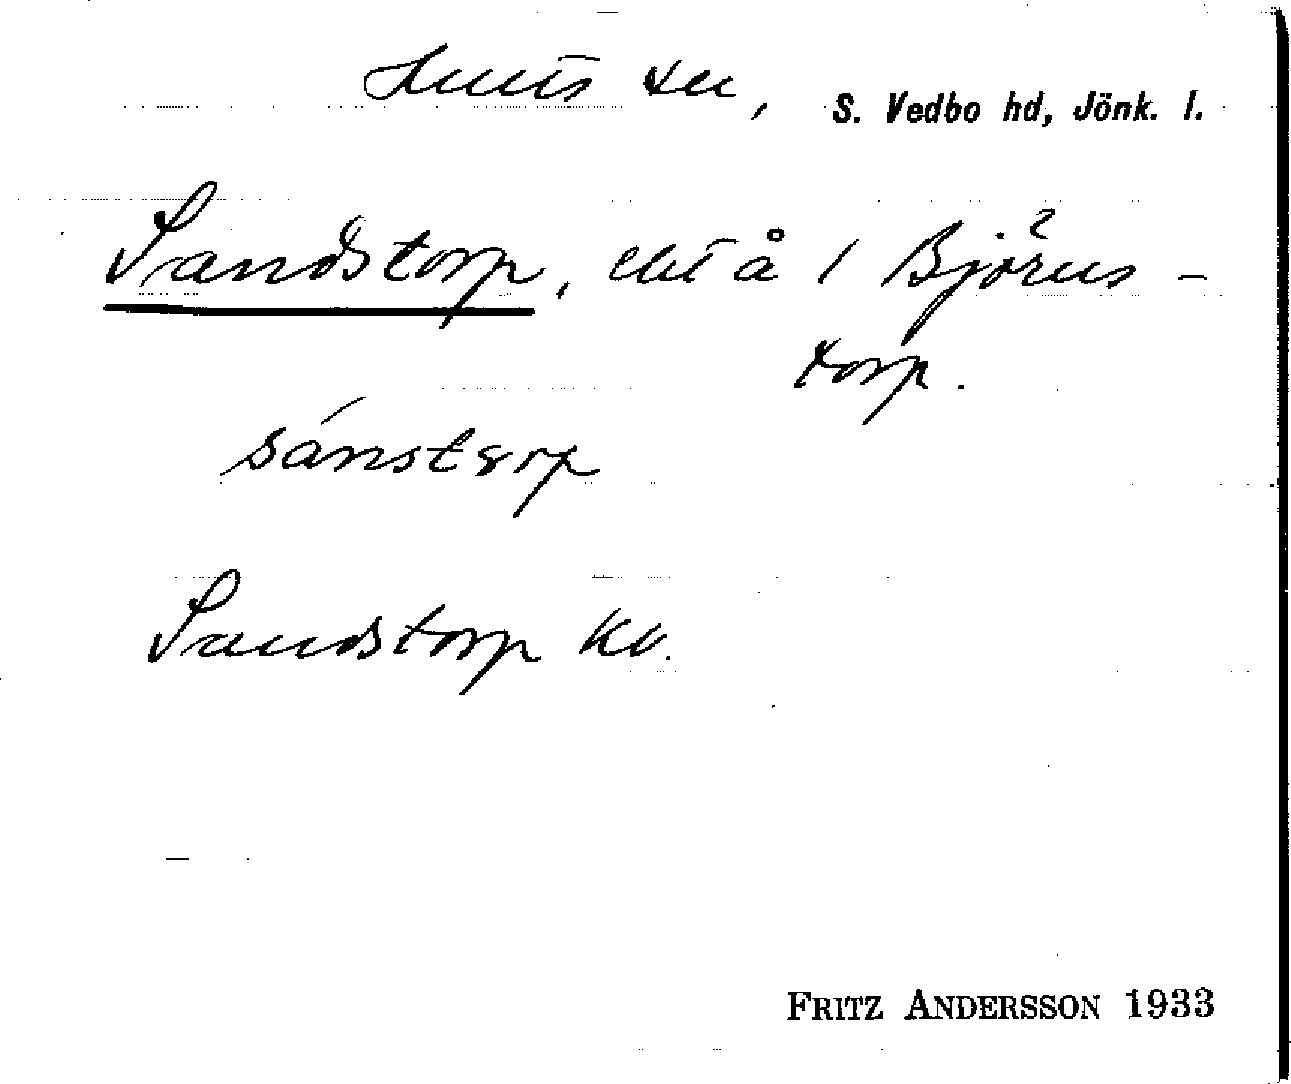 Hults sn, S. Vedbo hd, Jönk. l.
Sandstorp, ebt å 1 Björns-
torp.
sánstɞrp
Sandstorp kv.
FRITZ ANDERSSON 1933